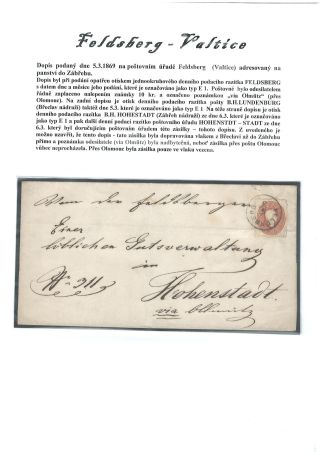 Feldsberg - Valtice
Dopis podaný dne 5.3.1869 na poštovním úřadě Feldsberg (Valtice) adresovaný na
panství do Zábřehu.
Dopis byl při podání opatřen otiskem jednokruhového denního podacího razítka FELDSBERG
s datem dne a měsíce jeho podání, které je označováno jako typ E 1. Poštovné bylo odesilatelem
řádně zaplaceno nalepením známky 10 kr. a označeno poznámkou „via Olmütz“ (přes
Olomouc). Na zadní dopisu je otisk denního podacího razítka pošty B.H.LUNDENBURG
(Břeclav nádraží) taktéž dne 5.3. které je označováno jako typ E 1 Na téže straně dopisu je otisk
denního podacího razítka B.H. HOHESTADT (Zábřeh nádraží) ze dne 6.3. které je označováno
jako typ E 1 a pak další denní podací razítko poštovního úřadu HOHENSTDT – STADT ze dne
6.3. který byl doručujícím poštovním úřadem této zásilky - tohoto dopisu. Z uvedeného je
možno uzavřít, že tento dopis - tato zásilka byla dopravována vlakem z Břeclavi až do Zábřehu
přímo a poznámka odesilatele (via Olmütz) byla nadbytečná, neboť zásilka přes poštu Olomouc
vůbec neprocházela. Přes Olomouc byla zásilka pouze ve vlaku vezena.
Von den Feldsberger
Einer
löblichen Gutsverwaltung
in
Nr 211
Hohenstadt
via Ollmütz